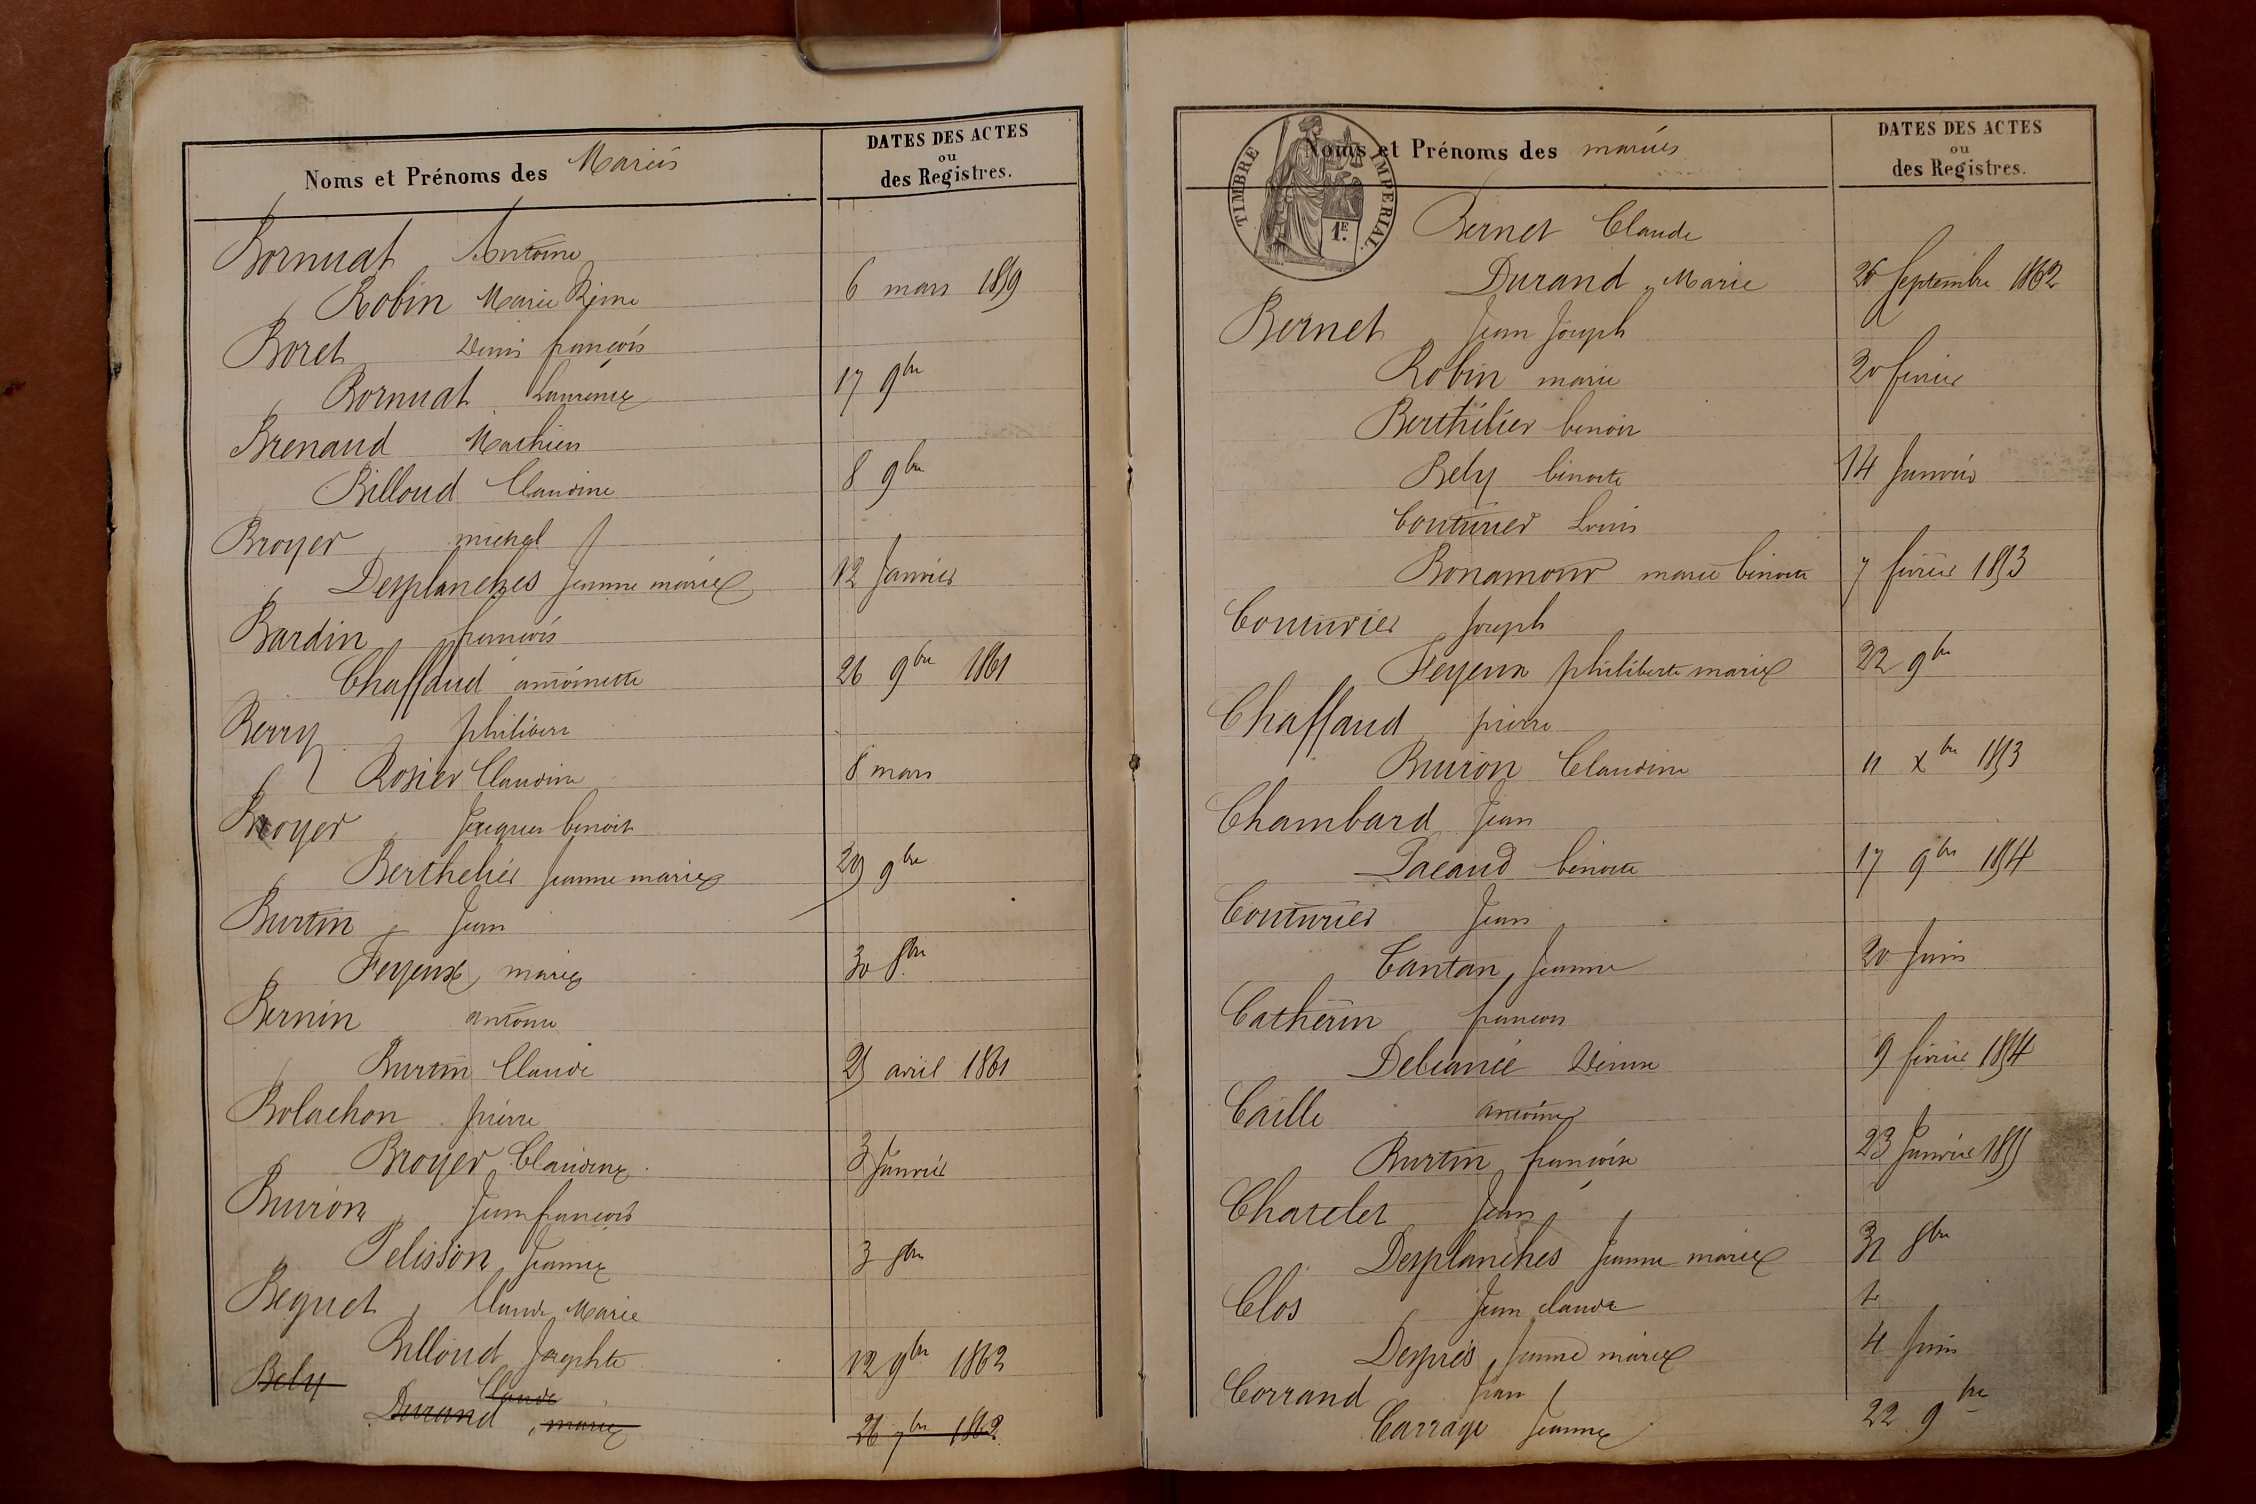 Noms et Prénoms des Mariés
DATES DES ACTES
ou
des Registres.
Bornuat Antoine
Robin Marie Reine 6 mars 1859
Boret Denis françois
Bornuat Laurence 17 9bre
Brenaud Mathieu
Billoud Claudine 8 9bre
Broyer michel
Desplanches Jeanne marie 12 Janvier
Bardin françois
Chaffaud antoinette 26 9bre 1861
Berry philibert
Rosier Claudine 8 mars
Broyer Jacques benoit
Berthelier Jeanne marie 29 9bre
Burtin Jean
Feyeux marie 30 8bre
Bernin antoine
Burtin Claude 25 avril 1861
Bolachon pierre
Broyer Claudine 3 Janvier
Buiron Jean françois
Pelisson Jeanne 3 8bre
Bequet Claude Marie
Billoud Josephte 12 9bre 1862
Bely Claude
Durand marie 26 7bre 1862
TIMBRE IMPERIAL.
1E.
Noms et Prénoms des mariés
DATES DES ACTES
ou
des Registres.
Bernet Claude
Durand Marie 26 Septembre 1862
Bernet Jean Joseph
Robin marie 20 fevrier
Berthélier benoit
Bely benoite 14 Janvier
Couturier Louis
Bonamour marie benoite 7 février 1853
Couturier Joseph
Feyeux philiberte marie 22 9bre
Chaffaud pierre
Buiron Claudine 11 Xbre 1853
Chambard Jean
Pacaud benoite 17 9bre 1854
Couturier Jean
Cantan Jeanne 20 Juin
Catherin françois
Debianée Denise 9 février 1854
Caille antoine
Burtin françoise 23 Janvier 1855
Chatelet Jean
Desplanches Jeanne marie 31 8bre
Clos Jean claude
Després Jeanne marie 4 Juin
Corrand Jean
Carrage Jeanne 22 9bre